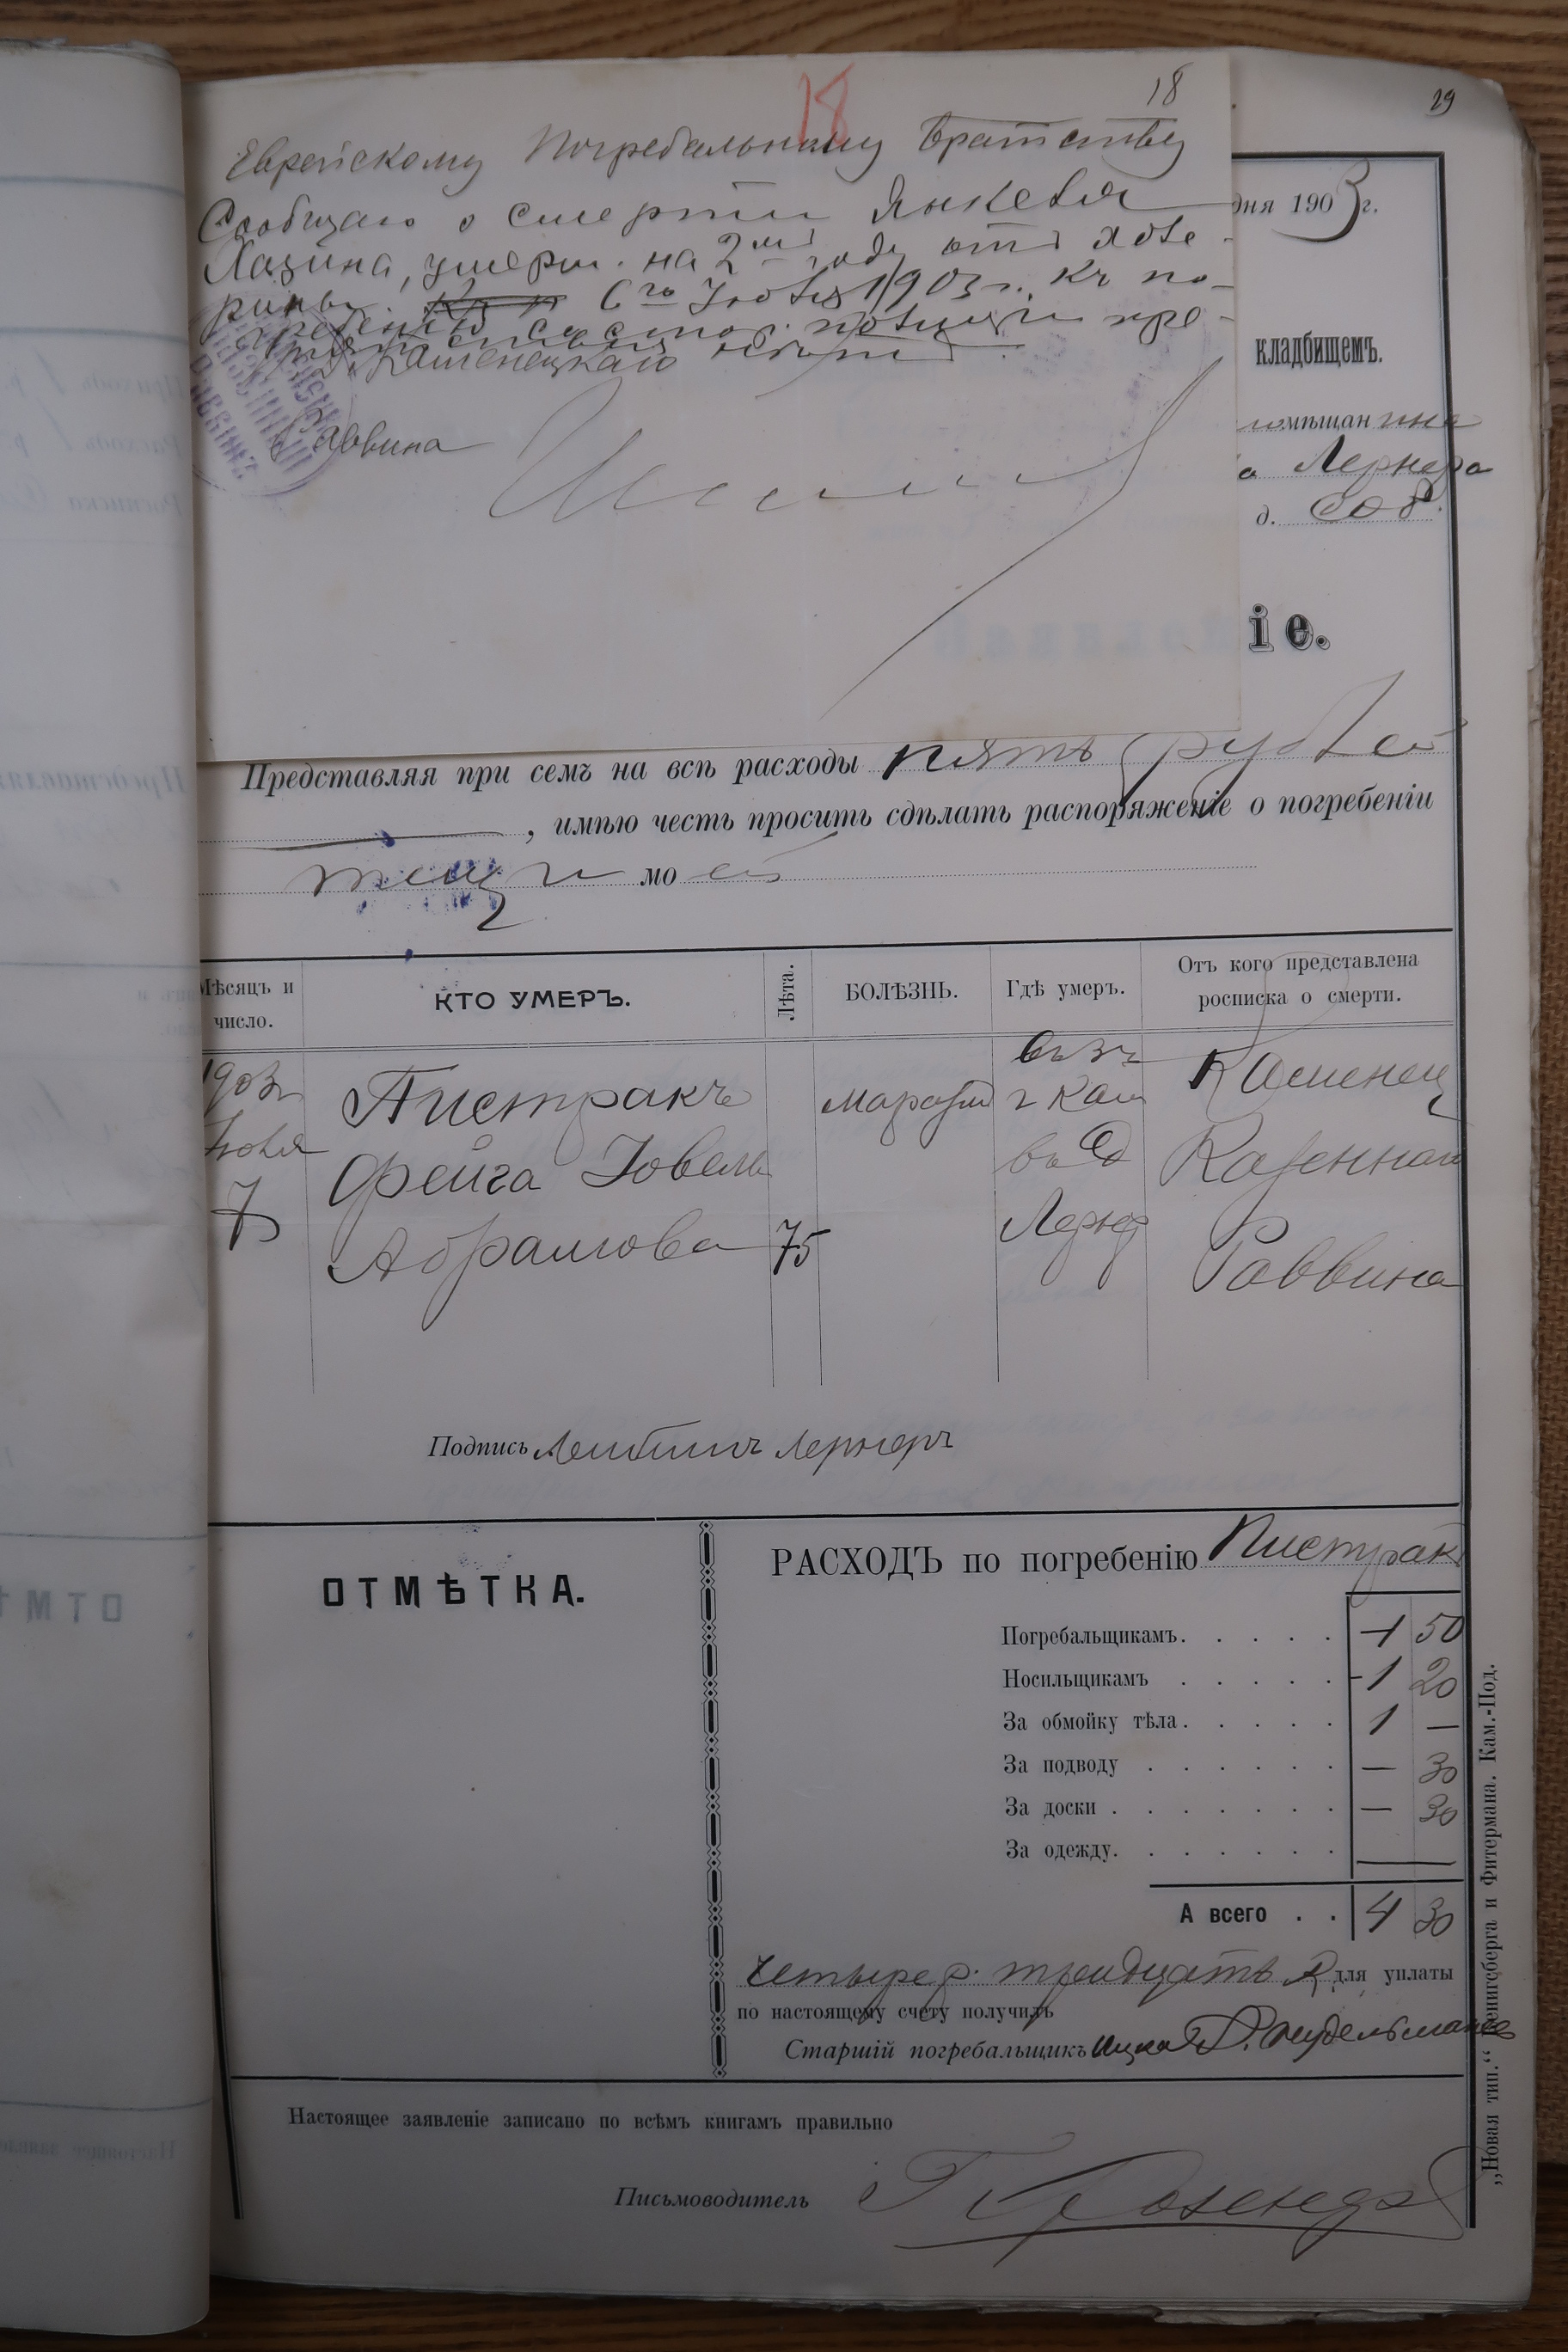 18
18
29
Еврейскому Погребальному Братству
Сообщаю о смерти Янкеля
Лазина, умерш. на 2мъ году отъ холе-
рины. 6го Іюля 1903 г. Къ по-
гребенію со стор. полиціи пре-
Каменецкаго
Раввина
дня 1903 г.
кладбищемъ.
мѣщанина
а Лернера
д. Соб.
іе.
Представляя при семъ на всѣ расходы пять рублей
, имѣю честь просить сдѣлать распоряженіе о погребеніи
тещи моей
Мѣсяцъ и число.
КТО УМЕРЪ.
Лѣта.
БОЛѢЗНЬ.
Гдѣ умеръ.
Отъ кого представлена росписка о смерти.
1903
Іюля
7
Пистракъ
Фейга Іовель
Абрамова
75
маразм
г Кам
въ д
Лернер
Каменец
Казеннаго
Раввина
Подпись Лейбишъ Лернеръ
ОТМѢТКА.
РАСХОДЪ по погребенію Пистрак
Погребальщикамъ. 1 50
Носильщикамъ 1 20
За обмойку тѣла. 1 —
За подводу — 30
За доски — 30
За одежду. —
А всего 4 30
четыре р. тридцать к для уплаты
по настоящему счету получилъ
Старшій погребальщикъ Ицко
Настоящее заявленіе записано по всѣмъ книгамъ правильно
Письмоводитель
„Новая тип.“ Ленигберга и Фитермана. Кам.-Под.